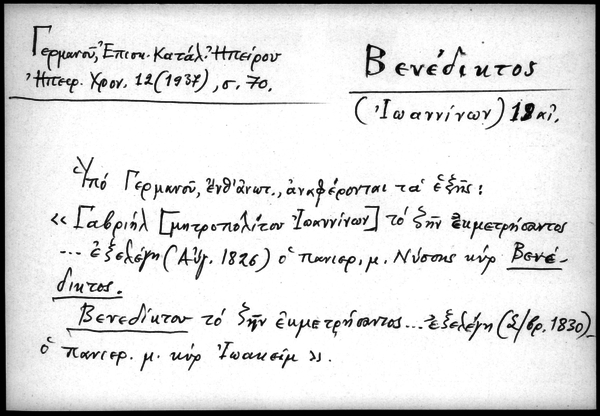 Γερμανοῦ, Ἐπισκ. Κατάλ. Ἠπείρου
Ἠπειρ. Χρον. 12 (1937), σ. 70.
Βενέδικτος
(Ἰωαννίνων) 19 αἰ.
Ὑπό Γερμανοῦ, ἔνθ' ἀνωτ., ἀναφέρονται τά ἑξῆς:
«Γαβριήλ [μητροπολίτου Ἰωαννίνων] τό ζῆν ἐκμετρήσαντος
... ἐξελέγη (Αὔγ. 1826) ὁ πανιερ. μ. Νύσσης κύρ Βενέ-
δικτος.
Βενεδίκτου τό ζῆν ἐκμετρήσαντος... ἐξελέγη (δ/βρ. 1830)
ὁ πανιερ. μ. κύρ Ἰωακείμ».